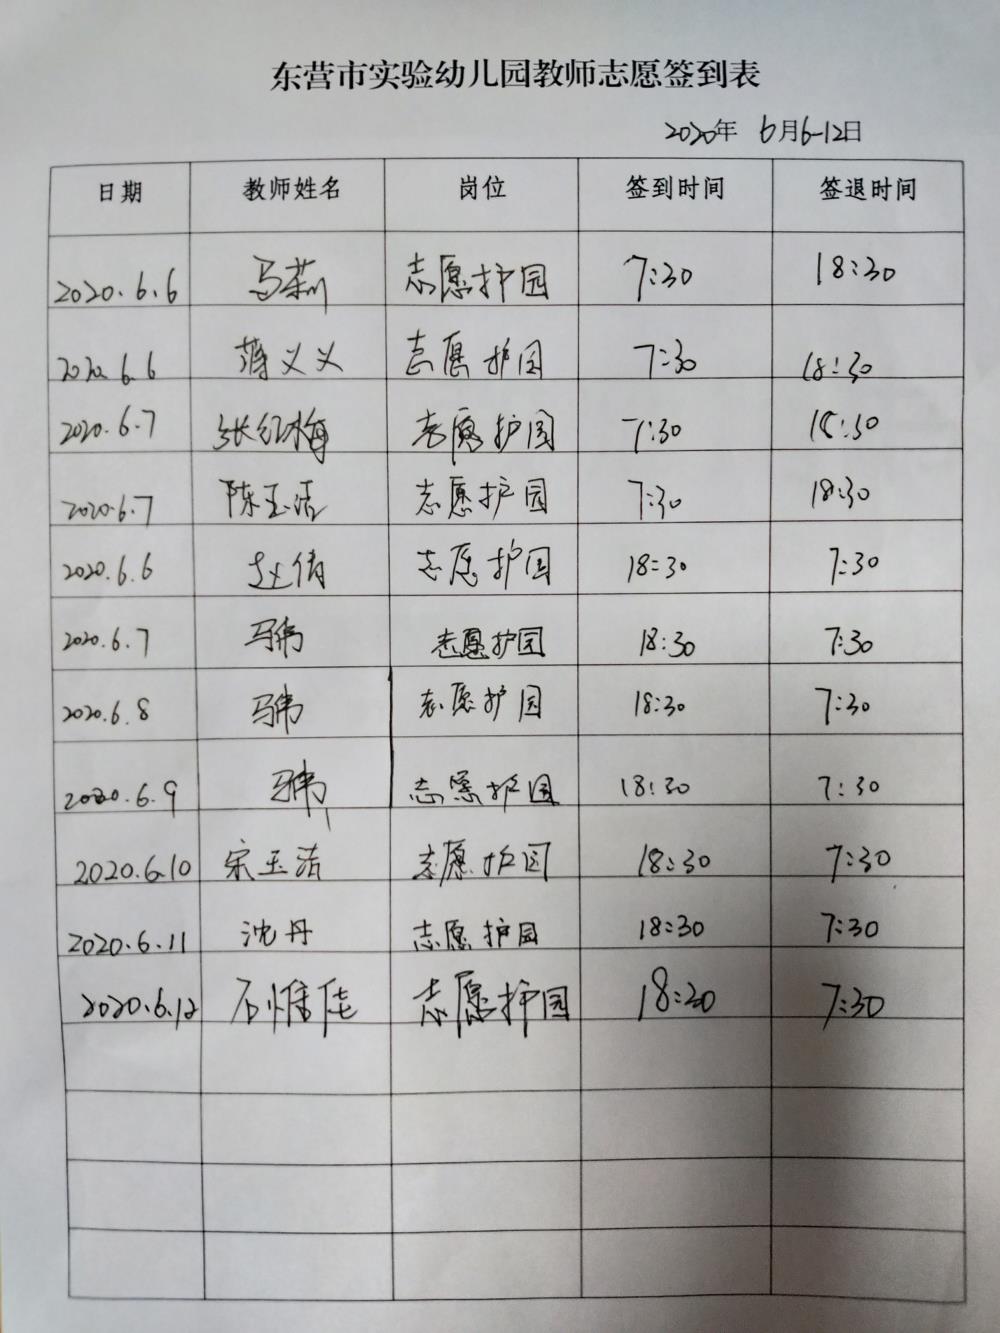 东营市实验幼儿园教师志愿签到表
2020年 6月6-12日
日期 教师姓名 岗位 签到时间 签退时间
2020.6.6 马莉 志愿护园 7:30 18:30
2020.6.6 蒋义义 志愿护园 7:30 18:30
2020.6.7 张红梅 志愿护园 7:30 18:30
2020.6.7 陈玉洁 志愿护园 7:30 18:30
2020.6.6 赵倩 志愿护园 18:30 7:30
2020.6.7 马伟 志愿护园 18:30 7:30
2020.6.8 马伟 志愿护园 18:30 7:30
2020.6.9 马伟 志愿护园 18:30 7:30
2020.6.10 宋玉洁 志愿护园 18:30 7:30
2020.6.11 沈丹 志愿护园 18:30 7:30
2020.6.12 石惟佳 志愿护园 18:30 7:30